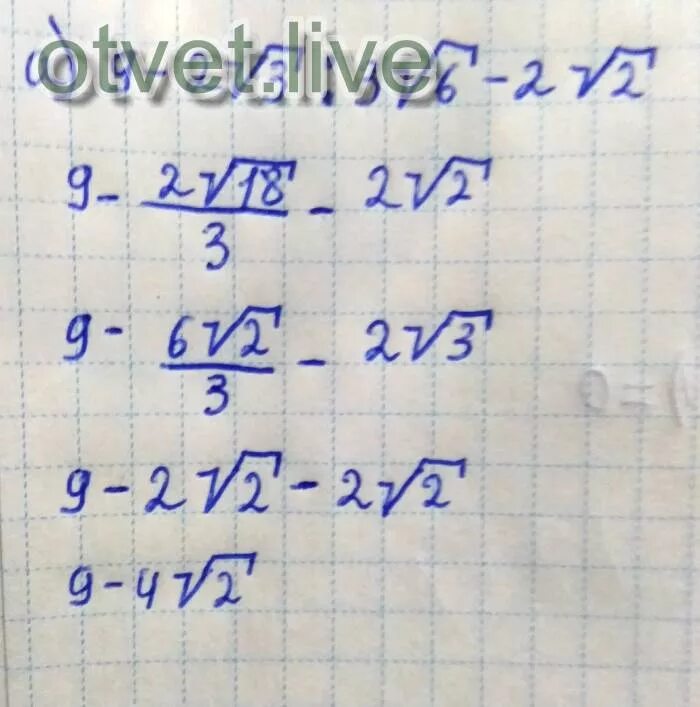 otvet.live
а) 9 - 2√3 : 3√6 - 2√2
9 - 2√18/3 - 2√2
9 - 6√2/3 - 2√3
9 - 2√2 - 2√2
9 - 4√2
) = 0